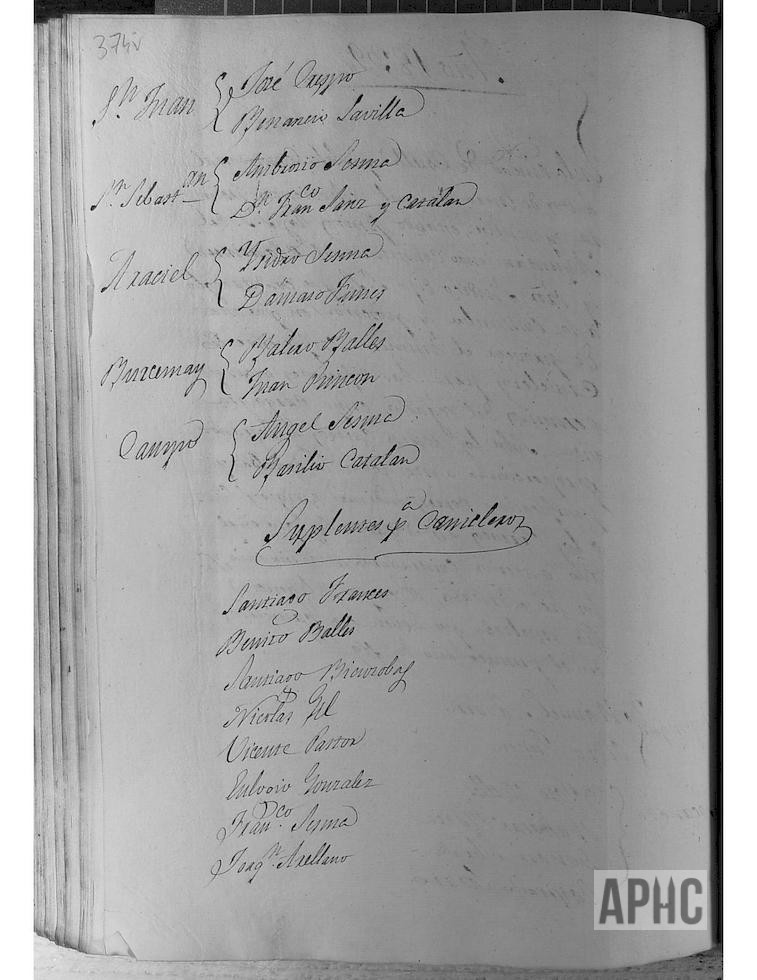 374v
Sn. Juan { José Crespo
Benancio Savilla
Sn. Sebastan { Ambrosio Sesma
Dn. Franco Sainz y Catalan
Araciel { Ysidro Sesma
Damaso Funes
Burcemay { Balero Balles
Juan Rincon
Campo { Angel Sesma
Basilio Catalan
Suplentes pa Canicleros
Santiago Frances
Benito Balles
Santiago
Nicolas Gil
Vicente Pastor
Eulogio Gonzalez
Franco. Sesma
Joaqn. Arellano
APHC